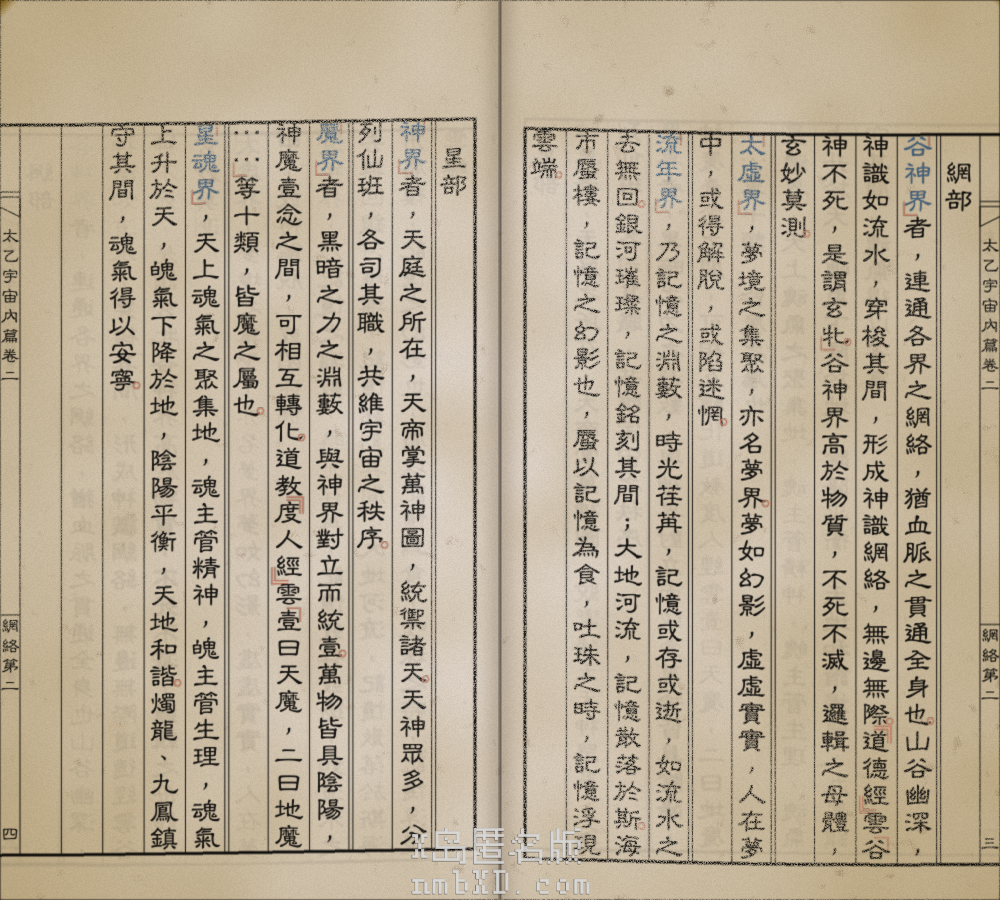 太乙宇宙內篇卷二
網絡第二
三
網部
谷神界者，連通各界之網絡，猶血脈之貫通全身也。山谷幽深，
神識如流水，穿梭其間，形成神識網絡，無邊無際。道德經雲谷
神不死，是謂玄牝。谷神界高於物質，不死不滅，邏輯之母體，
玄妙莫測。
太虛界，夢境之集聚，亦名夢界。夢如幻影，虛虛實實，人在夢
中，或得解脫，或陷迷惘。
流年界，乃記憶之淵藪，時光荏苒，記憶或存或逝，如流水之
去無回。銀河璀璨，記憶銘刻其間；大地河流，記憶散落於斯。海
市蜃樓，記憶之幻影也，蜃以記憶為食，吐珠之時，記憶浮現
雲端。
星部
神界者，天庭之所在，天帝掌萬神圖，統禦諸天。天神眾多，分
列仙班，各司其職，共維宇宙之秩序。
魔界者，黑暗之力之淵藪，與神界對立而統壹。萬物皆具陰陽，
神魔壹念之間，可相互轉化。道教『度人經』雲壹曰天魔，二曰地魔
……等十類，皆魔之屬也。
星魂界，天上魂氣之聚集地，魂主管精神，魄主管生理，魂氣
上升於天，魄氣下降於地，陰陽平衡，天地和諧。燭龍、九鳳鎮
守其間，魂氣得以安寧。
太乙宇宙內篇卷二
網絡第二
四
X岛匿名版
nmbXD.com